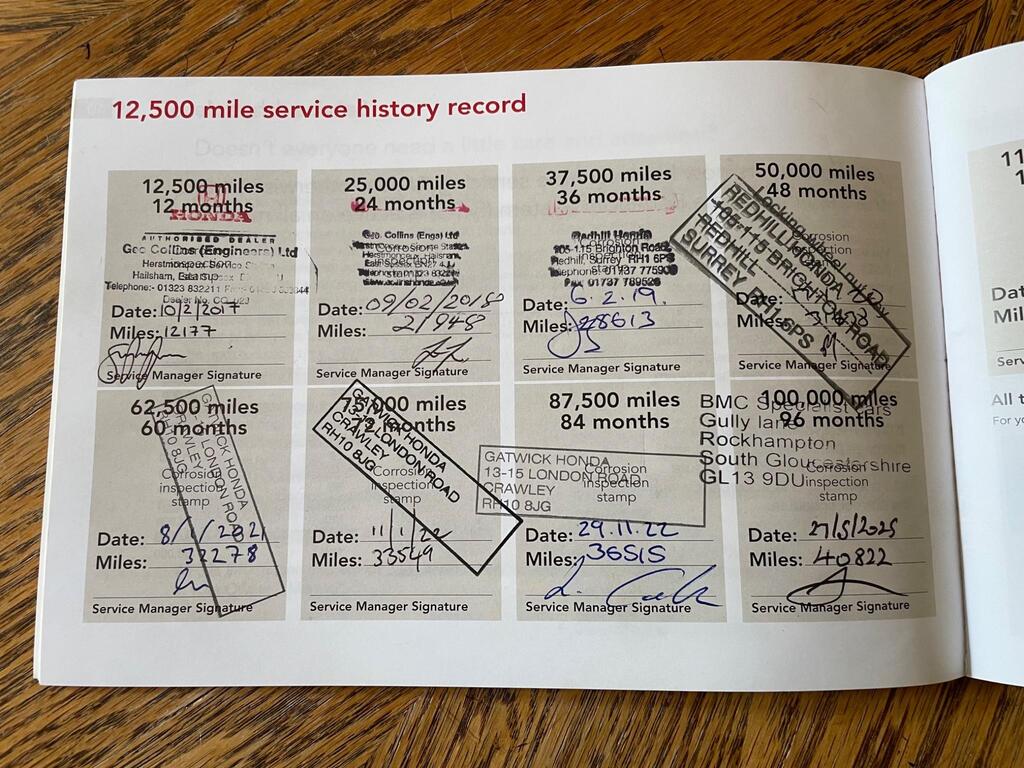 12,500 mile service history record
12,500 miles
12 months
HONDA
AUTHORISED DEALER
Geo Collins (Engineers) Ltd
Hailsham,
Telephone:- 01323 832211
Date: 10/2/2017
Miles: 12177
Service Manager Signature
25,000 miles
24 months
Geo. Collins (Engs) Ltd
Corrosion
inspection
stamp
Date: 09/02/2018
Miles: 21948
Service Manager Signature
37,500 miles
36 months
Redhill Honda
105-115 Brighton Road
Redhill, Surrey RH1 6PS
Telephone: 01737
Corrosion
inspection
stamp
Date: 6.2.19.
Miles: 28613
Service Manager Signature
50,000 miles
48 months
REDHILL HONDA
105-115 BRIGHTON ROAD
REDHILL
SURREY RH1 6PS
Corrosion
Date:
Miles:
Service Manager Signature
62,500 miles
60 months
GATWICK HONDA
LONDON ROAD
CRAWLEY
RH10 8JG
Corrosion
inspection
stamp
Date: 8/1/2021
Miles: 32278
Service Manager Signature
75,000 miles
72 months
GATWICK HONDA
LONDON ROAD
CRAWLEY
RH10 8JG
Corrosion
inspection
stamp
Date: 11/1/22
Miles: 33549
Service Manager Signature
87,500 miles
84 months
GATWICK HONDA
13-15 LONDON ROAD
CRAWLEY
RH10 8JG
Corrosion
inspection
stamp
Date: 29.11.22
Miles: 36515
Service Manager Signature
100,000 miles
96 months
BMC Specialist Cars
Gully lane
Rockhampton
South Gloucestershire
GL13 9DU
Corrosion
inspection
stamp
Date: 27/5/2025
Miles: 40822
Service Manager Signature
11
1
Dat
Mil
Serv
All t
For yo